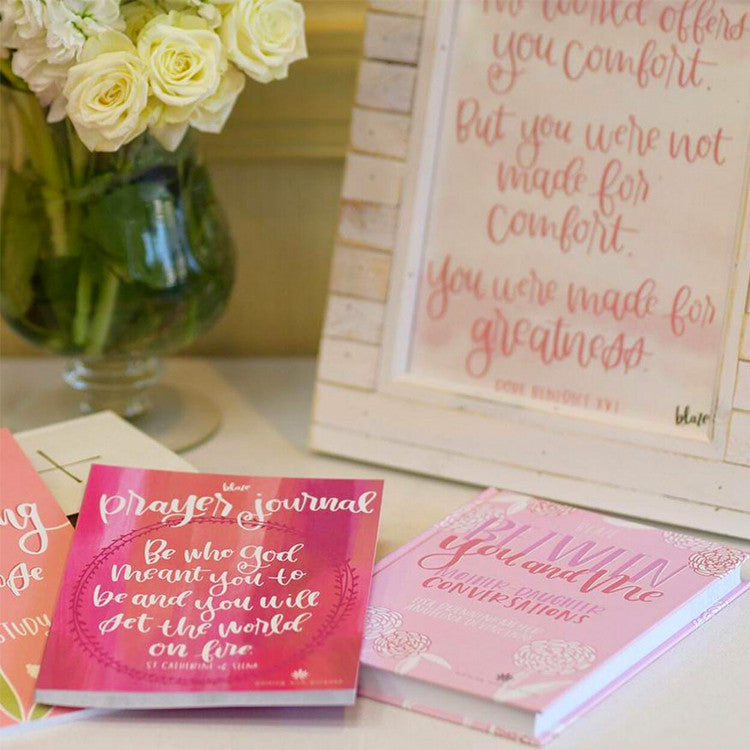 The world offers
you comfort.
But you were not
made for
comfort.
You were made for
greatness.
POPE BENEDICT XVI
blaze
blaze
prayer journal
Be who God
meant you to
be and you will
set the world
on fire.
ST CATHERINE of SIENA
BETWEEN
You and Me
MOTHER-DAUGHTER
CONVERSATIONS
STUDY